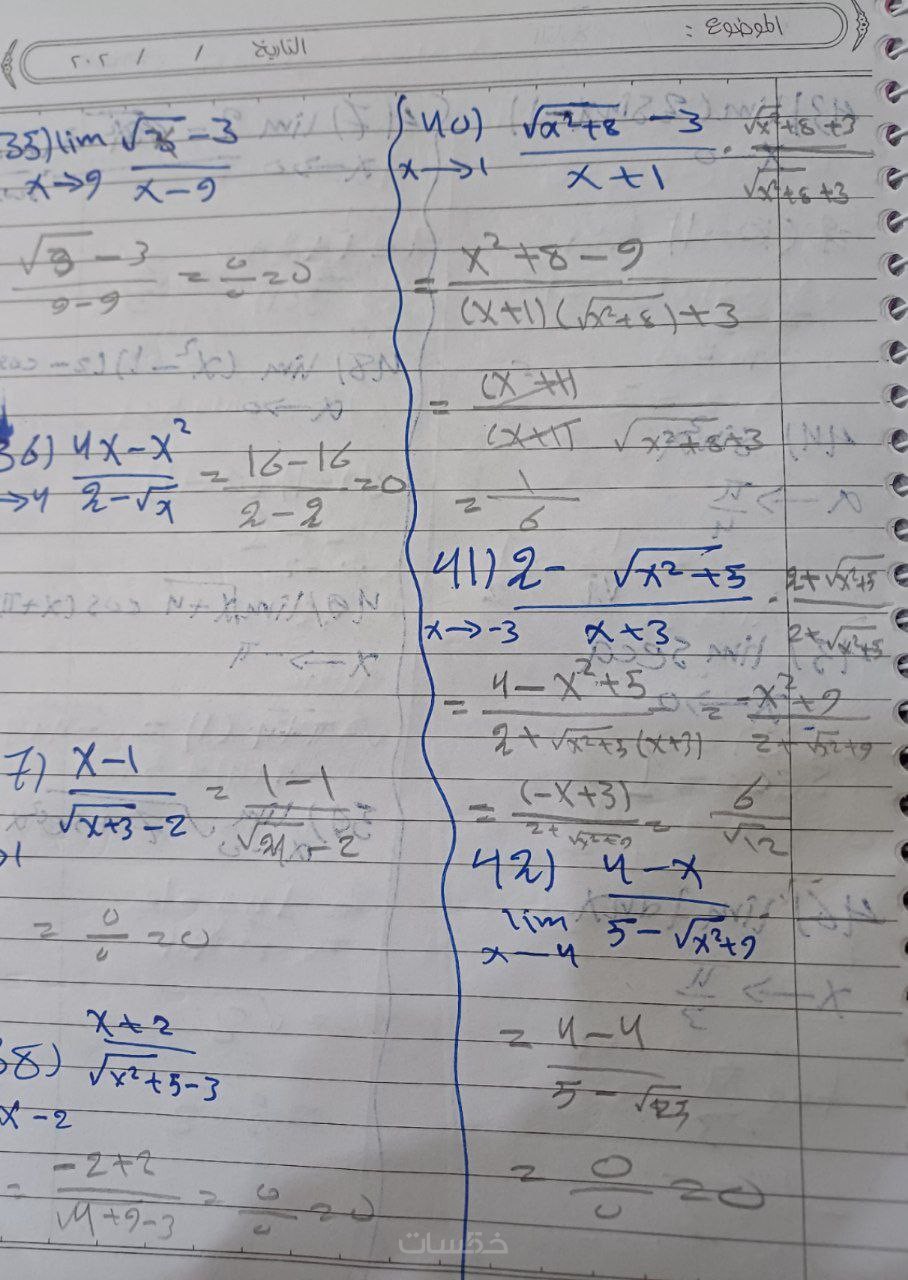 الموضوع :
التاريخ / / ٢٠٢
35) lim x→9 (√x - 3)/(x - 9)
(√9 - 3)/(9 - 9) = 0/0 = 0
36) (4x - x²)/(2 - √x) = (16 - 16)/(2 - 2) = 0
→4
7) (x - 1)/(√x+3 - 2) = (1 - 1)/(√4 - 2)
→1
= 0/0 = 0
38) (x + 2)/(√x²+5 - 3)
x -2
= (-2+2)/(√4+9-3) = 0/0 = 0
40) x→1 (√x²+8 - 3)/(x + 1) · (√x²+8 + 3)/(√x²+8 + 3)
= (x² + 8 - 9)/((x+1)(√x²+8) + 3)
= (x + 1)/((x+1) √x²+8 + 3)
= 1/6
41) (2 - √x²+5)/(x + 3) · (2 + √x²+5)/(2 + √x²+5)
x→-3
= (4 - x² + 5)/(2 + √x²+5 (x+3)) = (-x² + 9)/(2 +
= (-x+3)/(2+ = 6/√12
42) (4 - x)/(5 - √x²+9)
lim x — 4
= (4 - 4)/(5 -
= 0/0 = 0
خمسات